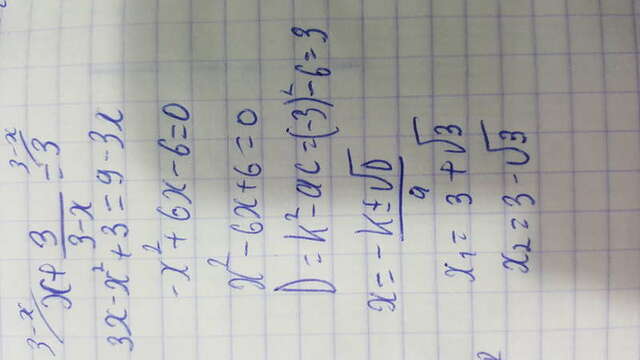 3-x/ x + 3/(3-x) = 3 3-x/
3x - x² + 3 = 9 - 3x
-x² + 6x - 6 = 0
x² - 6x + 6 = 0
D = k² - ac = (-3)² - 6 = 3
x = (-k ± √D)/a
x₁ = 3 + √3
x₂ = 3 - √3